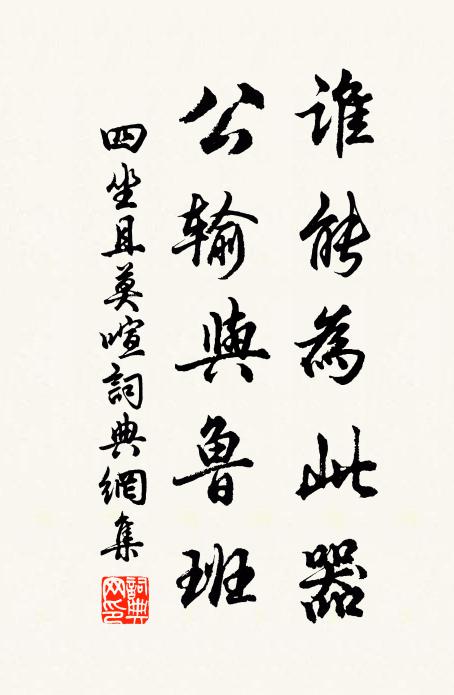 誰能為此器
公輸與魯班
四坐且莫喧詞典網集
詞典網印